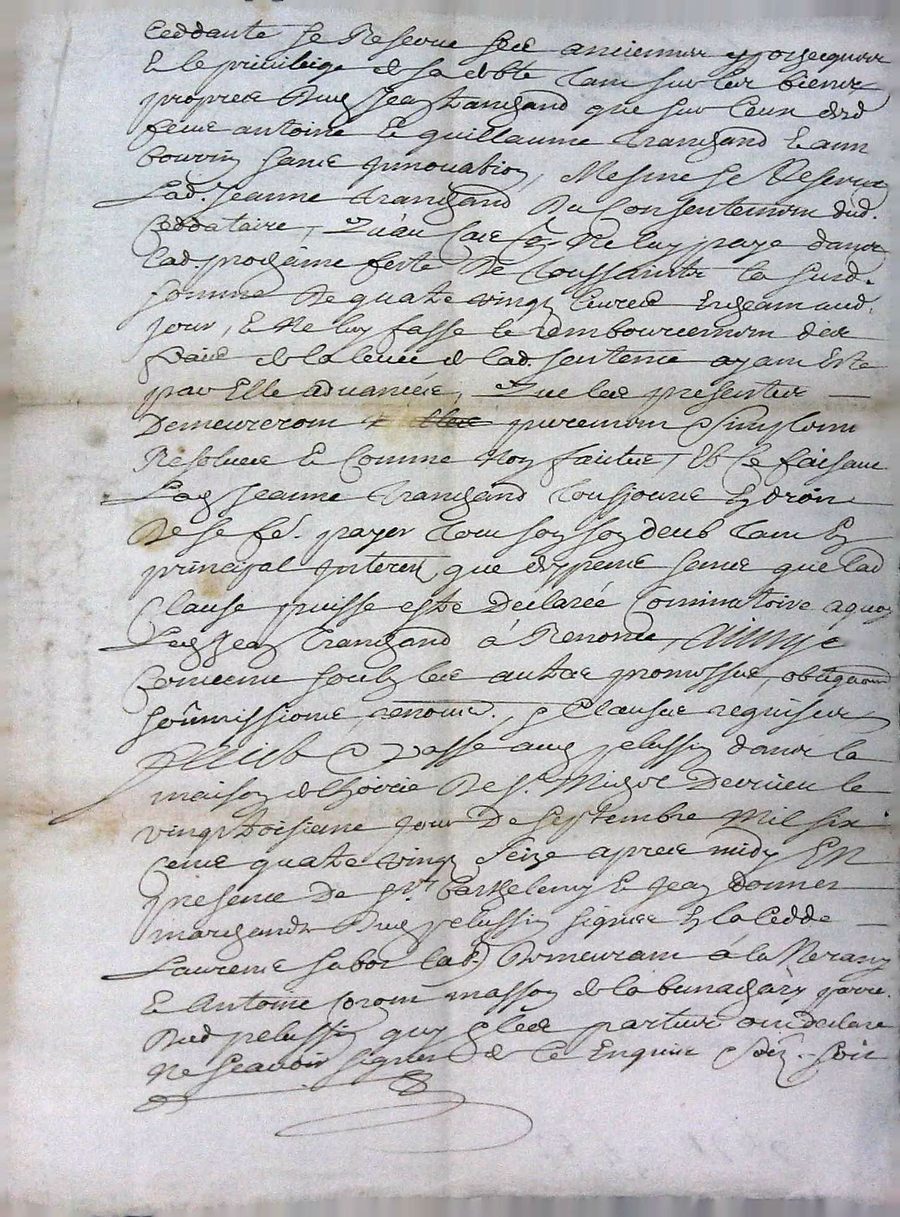 ceddante se Reserve ses anciennes ypotecques
& le privilege de sa debte tant sur les biens
propres dud Jean tranchand que sur ceux desd
feux antoine & guillaume tranchand & ann
bouvin sans jnnovation, Mesme se Reserve
Lad. Jeanne tranchand du Consentement dud.
Ceddataire, qu'au cas il ne luy paye dans
lad. prochaine feste de toussaintz la susd.
somme de quatre vingtz livres
jour, & ne luy fasse le remboursement des
frais de la levée de lad. sentence ayant este
par Elle advancées, que les presentes
Demeureront purement & simplem
Resolues & comme non faites, Et ce faisant
Lad Jeanne tranchand tousjours En droit
de se fe. payer tout son deub tant En
principal jnterest que despens sans que lad
Clause puisse estre declarée Cominatoire a quoy
Led Jean tranchand à Renoncé, ainsy
convenu soubz les autres promesses, obligaons
soûmissions, renonc., & Clauses requises
faict & Passé aud pelussin dans la
maison de Sr. Devrieu le
vingt troisieme jour De septembre Mil six
cens quatre vingtz seize apres midy En
presence De sr. Barthelemy & Jean donnet
marchands Dud pelussin signes En la Cedde
Laurens sabot lad Demeurant à la
& Antoine masson de la parre.
Dud pelussin quy & les parties ont declare
ne scavoir signer de ce Enquis soit